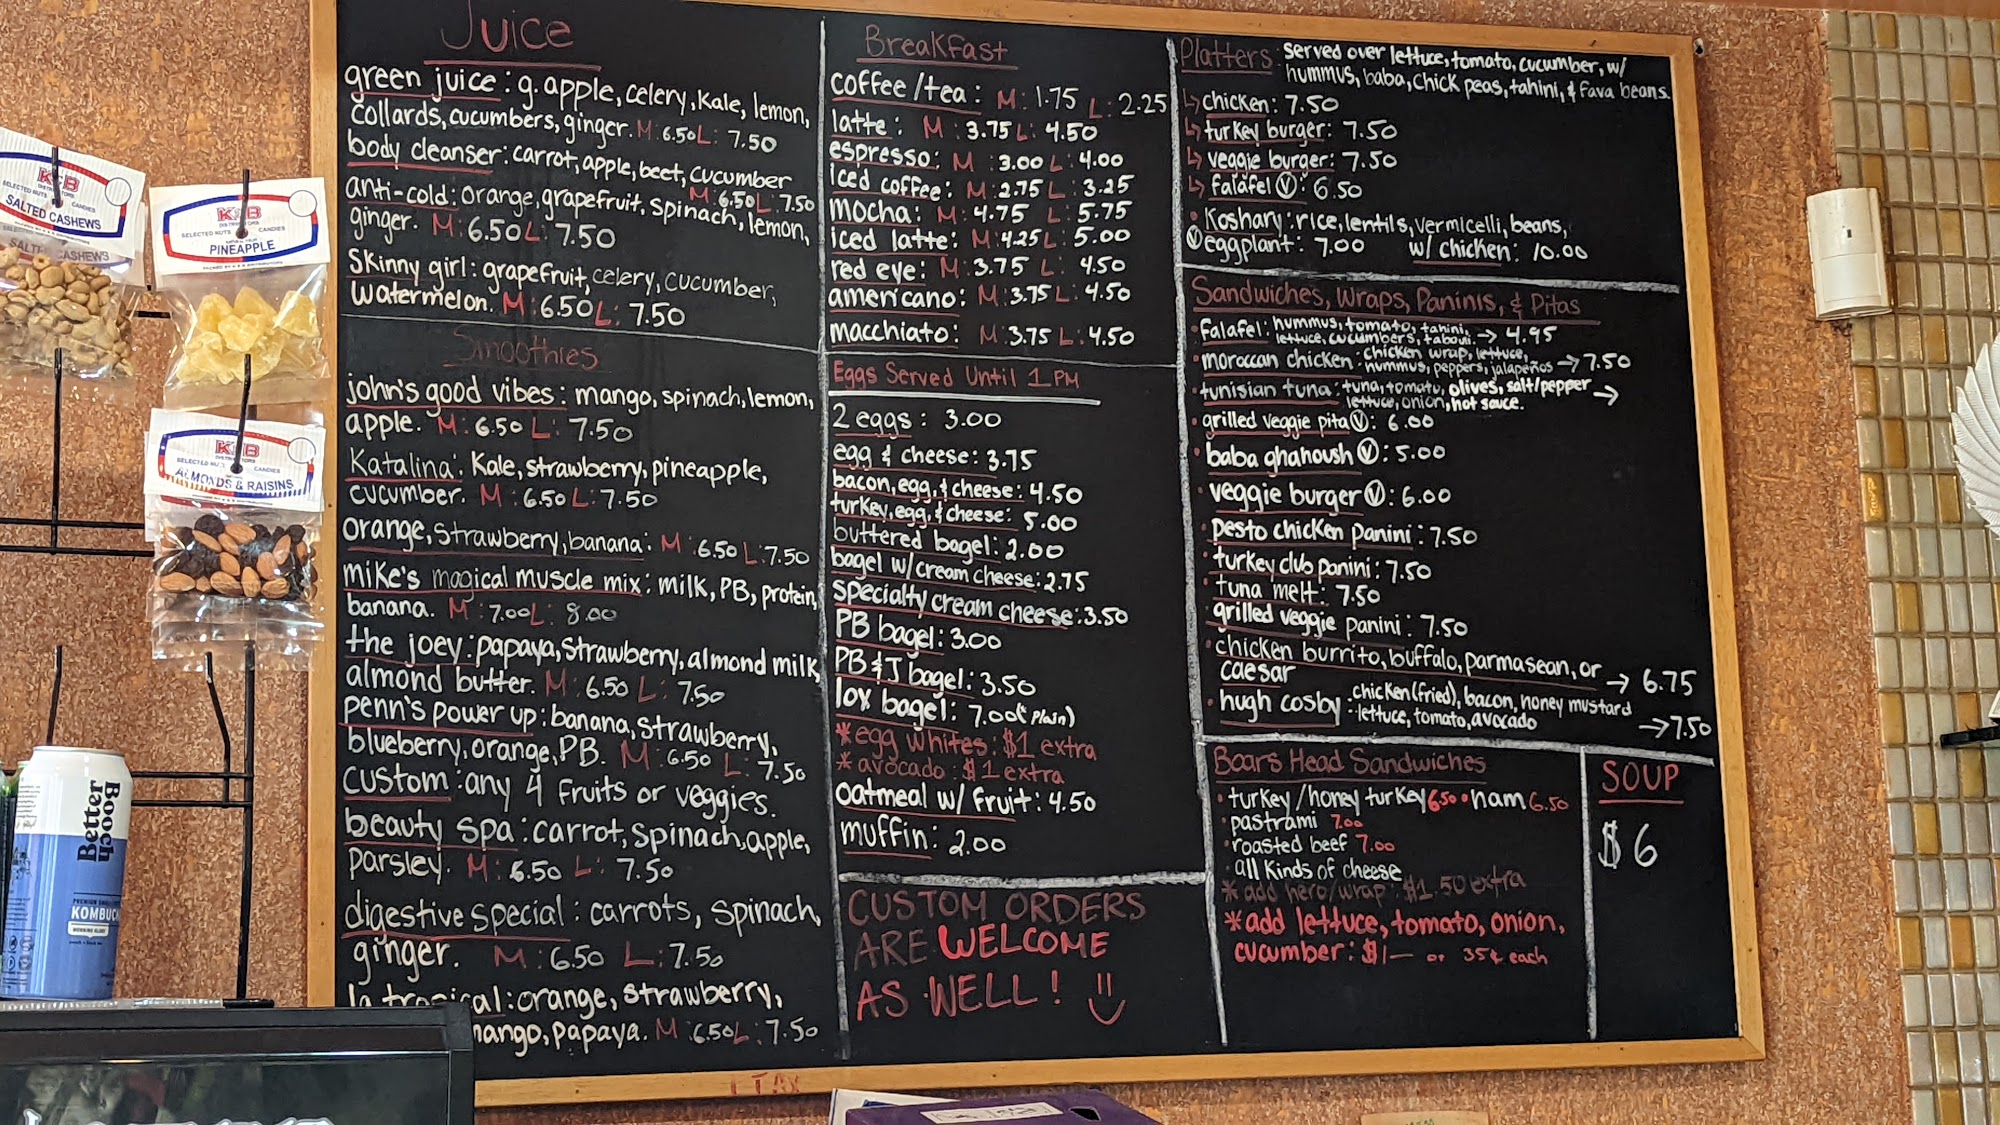 Juice
green juice: g. apple, celery, Kale, lemon,
collards, cucumbers, ginger. M: 6.50 L: 7.50
body cleanser: carrot, apple, beet, cucumber
M: 6.50 L: 7.50
anti-cold: orange, grapefruit, spinach, lemon,
ginger. M: 6.50 L: 7.50
Skinny girl: grapefruit, celery, cucumber,
watermelon. M: 6.50 L: 7.50
Smoothies
john's good vibes: mango, spinach, lemon,
apple. M: 6.50 L: 7.50
Katalina: Kale, strawberry, pineapple,
cucumber. M: 6.50 L: 7.50
orange, strawberry, banana: M: 6.50 L: 7.50
miKe's magical muscle mix: milk, PB, protein,
banana. M: 7.00 L: 8.00
the joey: papaya, strawberry, almond milk,
almond butter. M: 6.50 L: 7.50
penn's power up: banana, strawberry,
blueberry, orange, PB. M: 6.50 L: 7.50
custom: any 4 fruits or veggies.
beauty spa: carrot, spinach, apple,
parsley. M: 6.50 L: 7.50
digestive special: carrots, spinach,
ginger. M: 6.50 L: 7.50
la tropical: orange, strawberry,
mango, papaya. M: 6.50 L: 7.50
Breakfast
coffee/tea: M: 1.75 L: 2.25
latte: M: 3.75 L: 4.50
espresso: M: 3.00 L: 4.00
iced coffee: M: 2.75 L: 3.25
mocha: M: 4.75 L: 5.75
iced latte: M: 4.25 L: 5.00
red eye: M: 3.75 L: 4.50
americano: M: 3.75 L: 4.50
macchiato: M: 3.75 L: 4.50
Eggs Served Until 1 PM
2 eggs: 3.00
egg & cheese: 3.75
bacon, egg, & cheese: 4.50
turkey, egg, & cheese: 5.00
buttered bagel: 2.00
bagel w/cream cheese: 2.75
specialty cream cheese: 3.50
PB bagel: 3.00
PB & J bagel: 3.50
lox bagel: 7.00 (* plain)
* egg whites: $1 extra
* avocado: $1 extra
oatmeal w/ fruit: 4.50
muffin: 2.00
CUSTOM ORDERS
ARE WELCOME
AS WELL!
Platters: served over lettuce, tomato, cucumber, w/
hummus, baba, chick peas, tahini, & fava beans.
↳ chicken: 7.50
↳ turkey burger: 7.50
↳ veggie burger: 7.50
↳ falafel Ⓥ: 6.50
• Koshary: rice, lentils, vermicelli, beans,
Ⓥ eggplant: 7.00 w/ chicken: 10.00
Sandwiches, Wraps, Paninis, & Pitas
• falafel: hummus, tomato, tahini,
lettuce, cucumbers, tabouli. → 4.95
• moroccan chicken: chicken wrap, lettuce,
hummus, peppers, jalapeños → 7.50
• tunisian tuna: tuna, tomato, olives, salt/pepper →
lettuce, onion, hot sauce.
• grilled veggie pita Ⓥ: 6.00
• baba ghanoush Ⓥ: 5.00
• veggie burger Ⓥ: 6.00
• pesto chicken panini: 7.50
• turkey club panini: 7.50
• tuna melt: 7.50
• grilled veggie panini: 7.50
• chicken burrito, buffalo, parmasean, or
caesar → 6.75
• hugh cosby: chicken (fried), bacon, honey mustard
lettuce, tomato, avocado → 7.50
Boars Head Sandwiches
• turkey/honey turkey 6.50 • ham 6.50
• pastrami 7.00
• roasted beef 7.00
• all kinds of cheese
* add hero/wrap: $1.50 extra
* add lettuce, tomato, onion,
cucumber: $1— or 35¢ each
SOUP
$6
KCB
DISTRIBUTORS
SELECTED NUTS CANDIES
SALTED CASHEWS
KCB
DISTRIBUTORS
SELECTED NUTS CANDIES
PINEAPPLE
KCB
DISTRIBUTORS
SELECTED NUTS CANDIES
ALMONDS & RAISINS
Better
Booch
KOMBUC
TAX